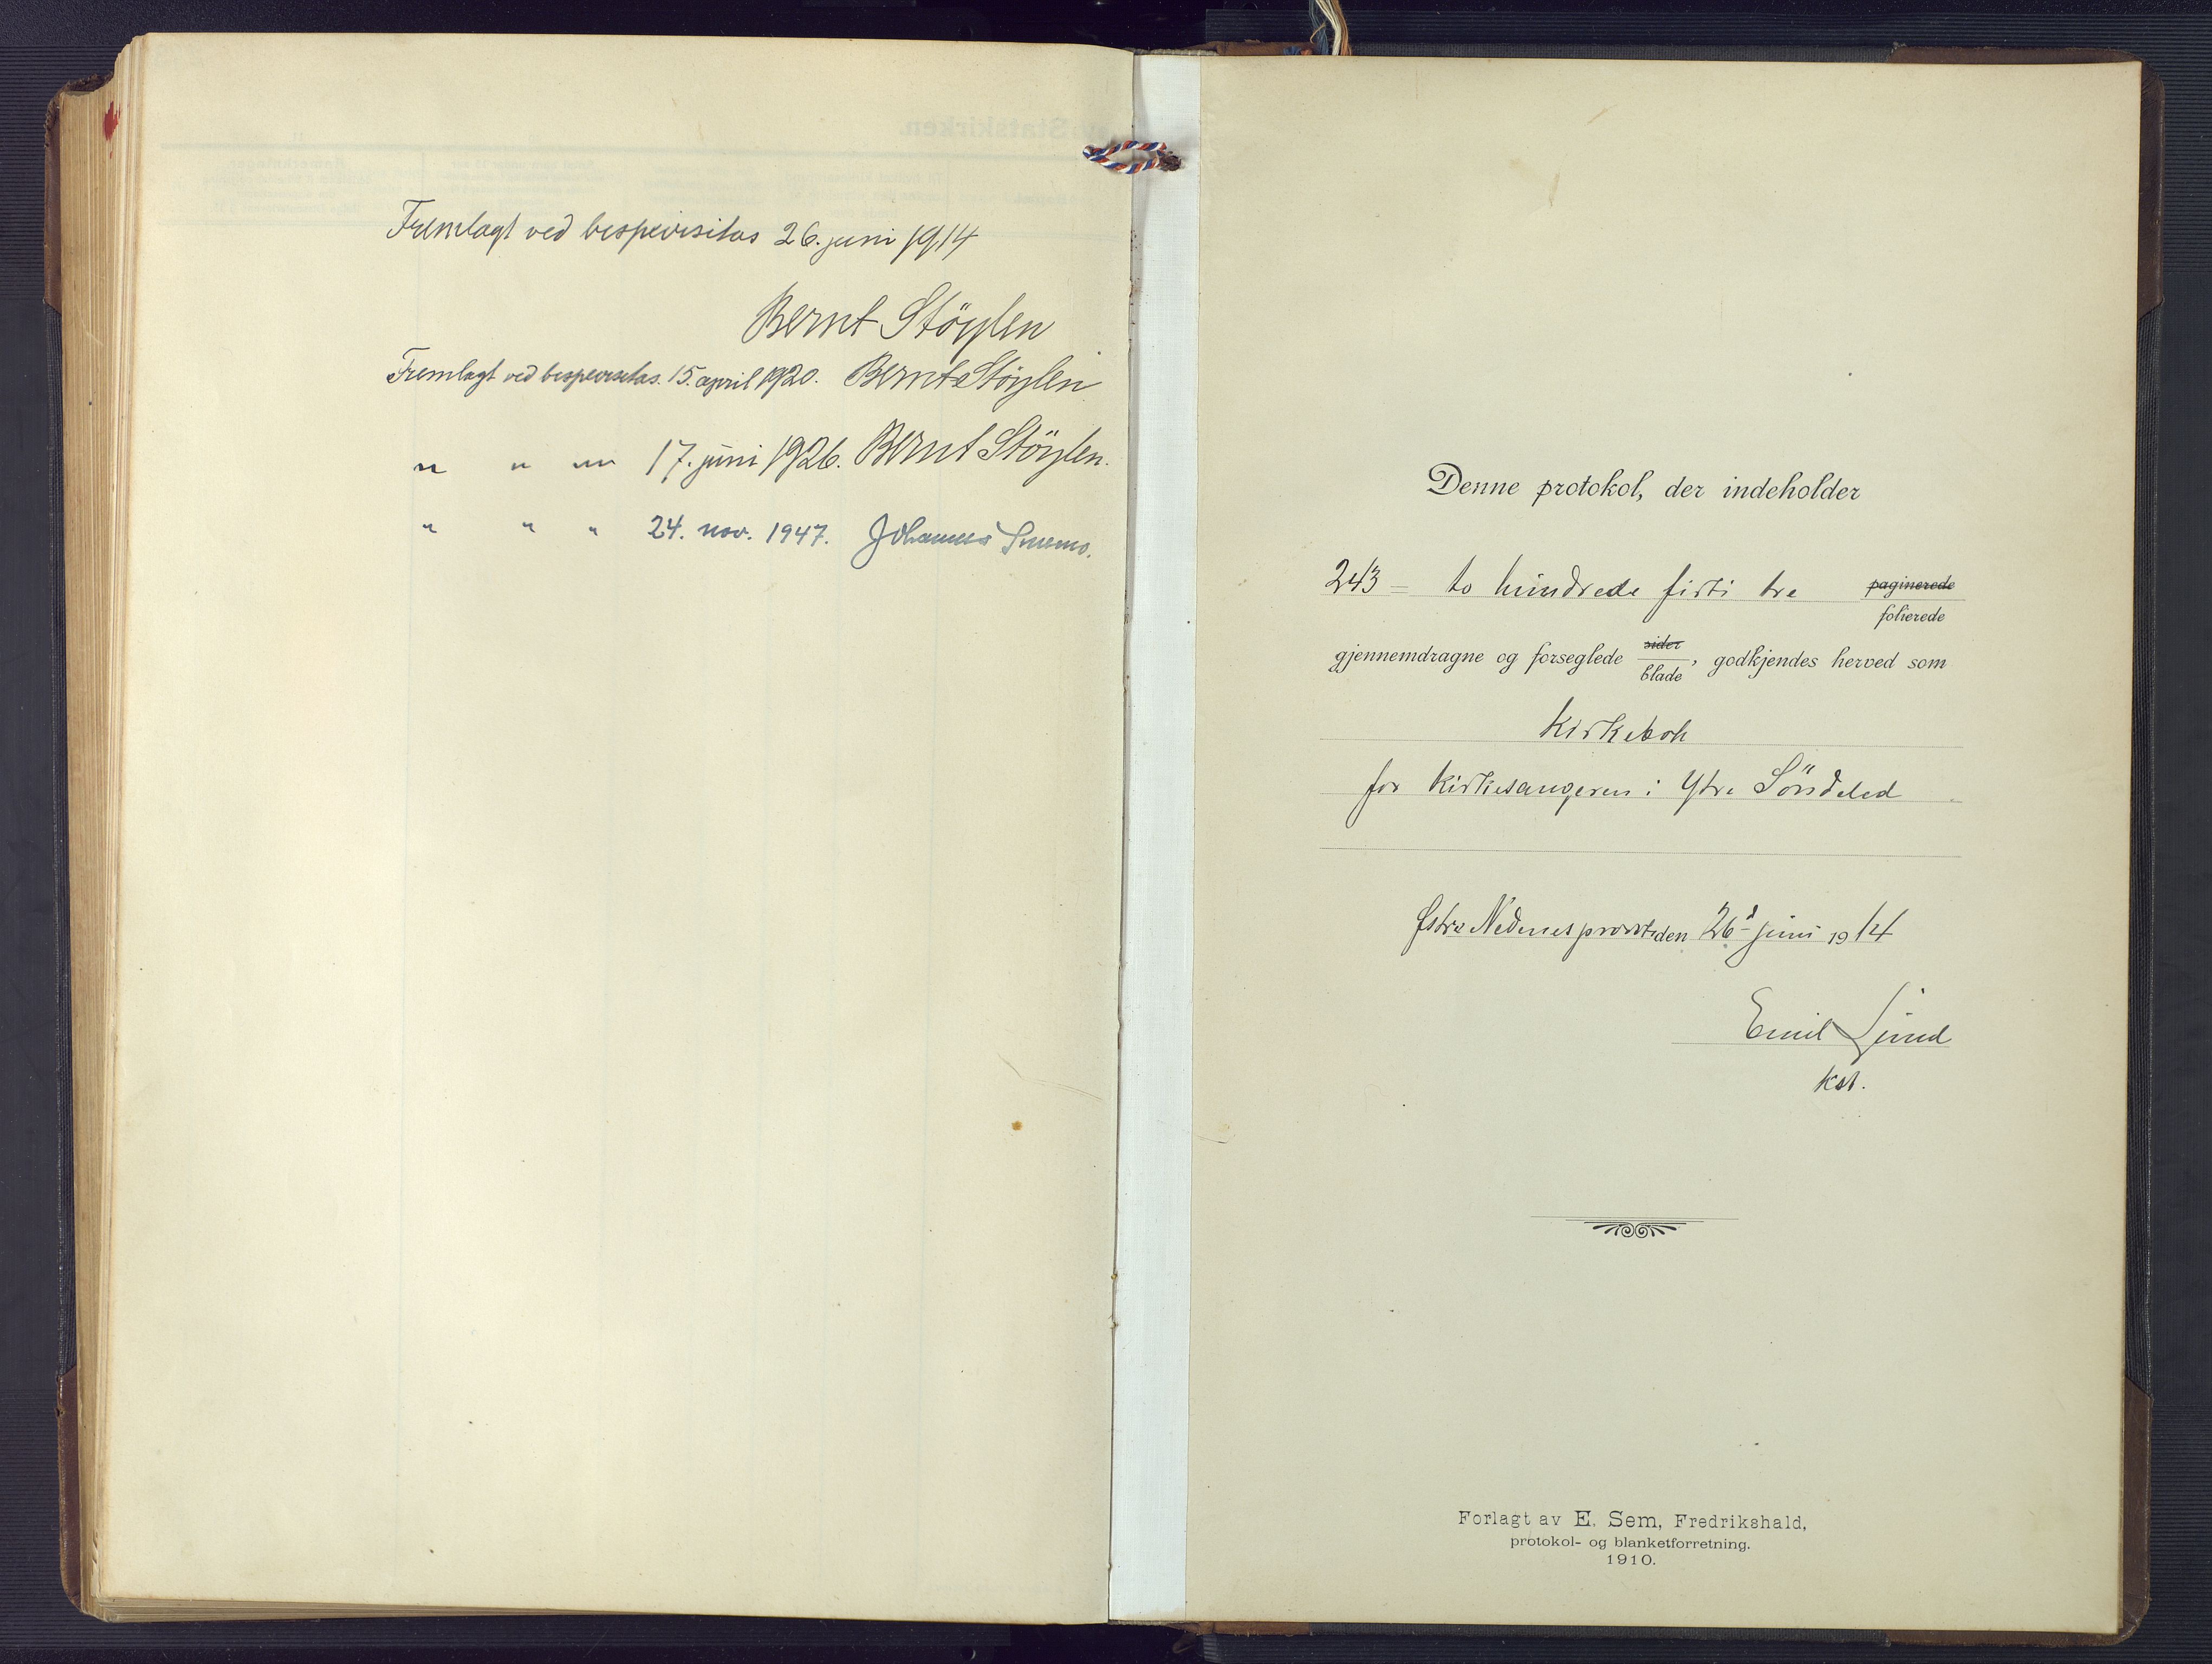 Fremlagt ved bispevisitas 26. juni 1914
Bernt Stöylen
Fremlagt ved bispevisitas. 15. april 1920. Bernt Stöylen
" " " 17. juni 1926. Bernt Stöylen.
" " " 24. nov. 1947. Johannes Smemo.
Denne protokol, der indeholder
243 = to hundrede firti tre paginerede
folierede
gjennemdragne og forseglede sider
blade, godkjendes herved som
kirkebok
for kirkesangeren i Ytre Söndeled
Østre Nedenes prosti den 26d juni 1914
Emil Lund
kst.
Forlagt av E. Sem, Fredrikshald,
protokol- og blanketforretning.
1910.